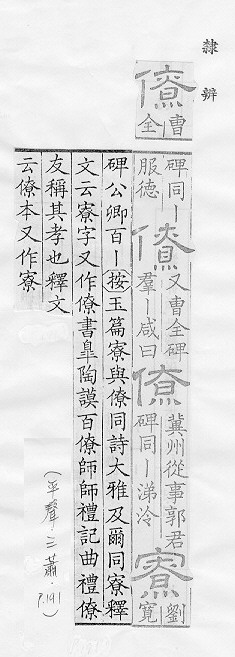 隸辨
僚曹全
碑同丨服德僚又曹全碑羣丨咸曰僚冀州從事郭君碑同丨涕泠寮劉寬
碑公卿百丨按玉篇寮與僚同詩大雅及爾同寮釋
文云寮字又作僚書皐陶謨百僚師師禮記曲禮僚
友稱其孝也釋文
云僚本又作寮
(平聲三蕭．P.191)